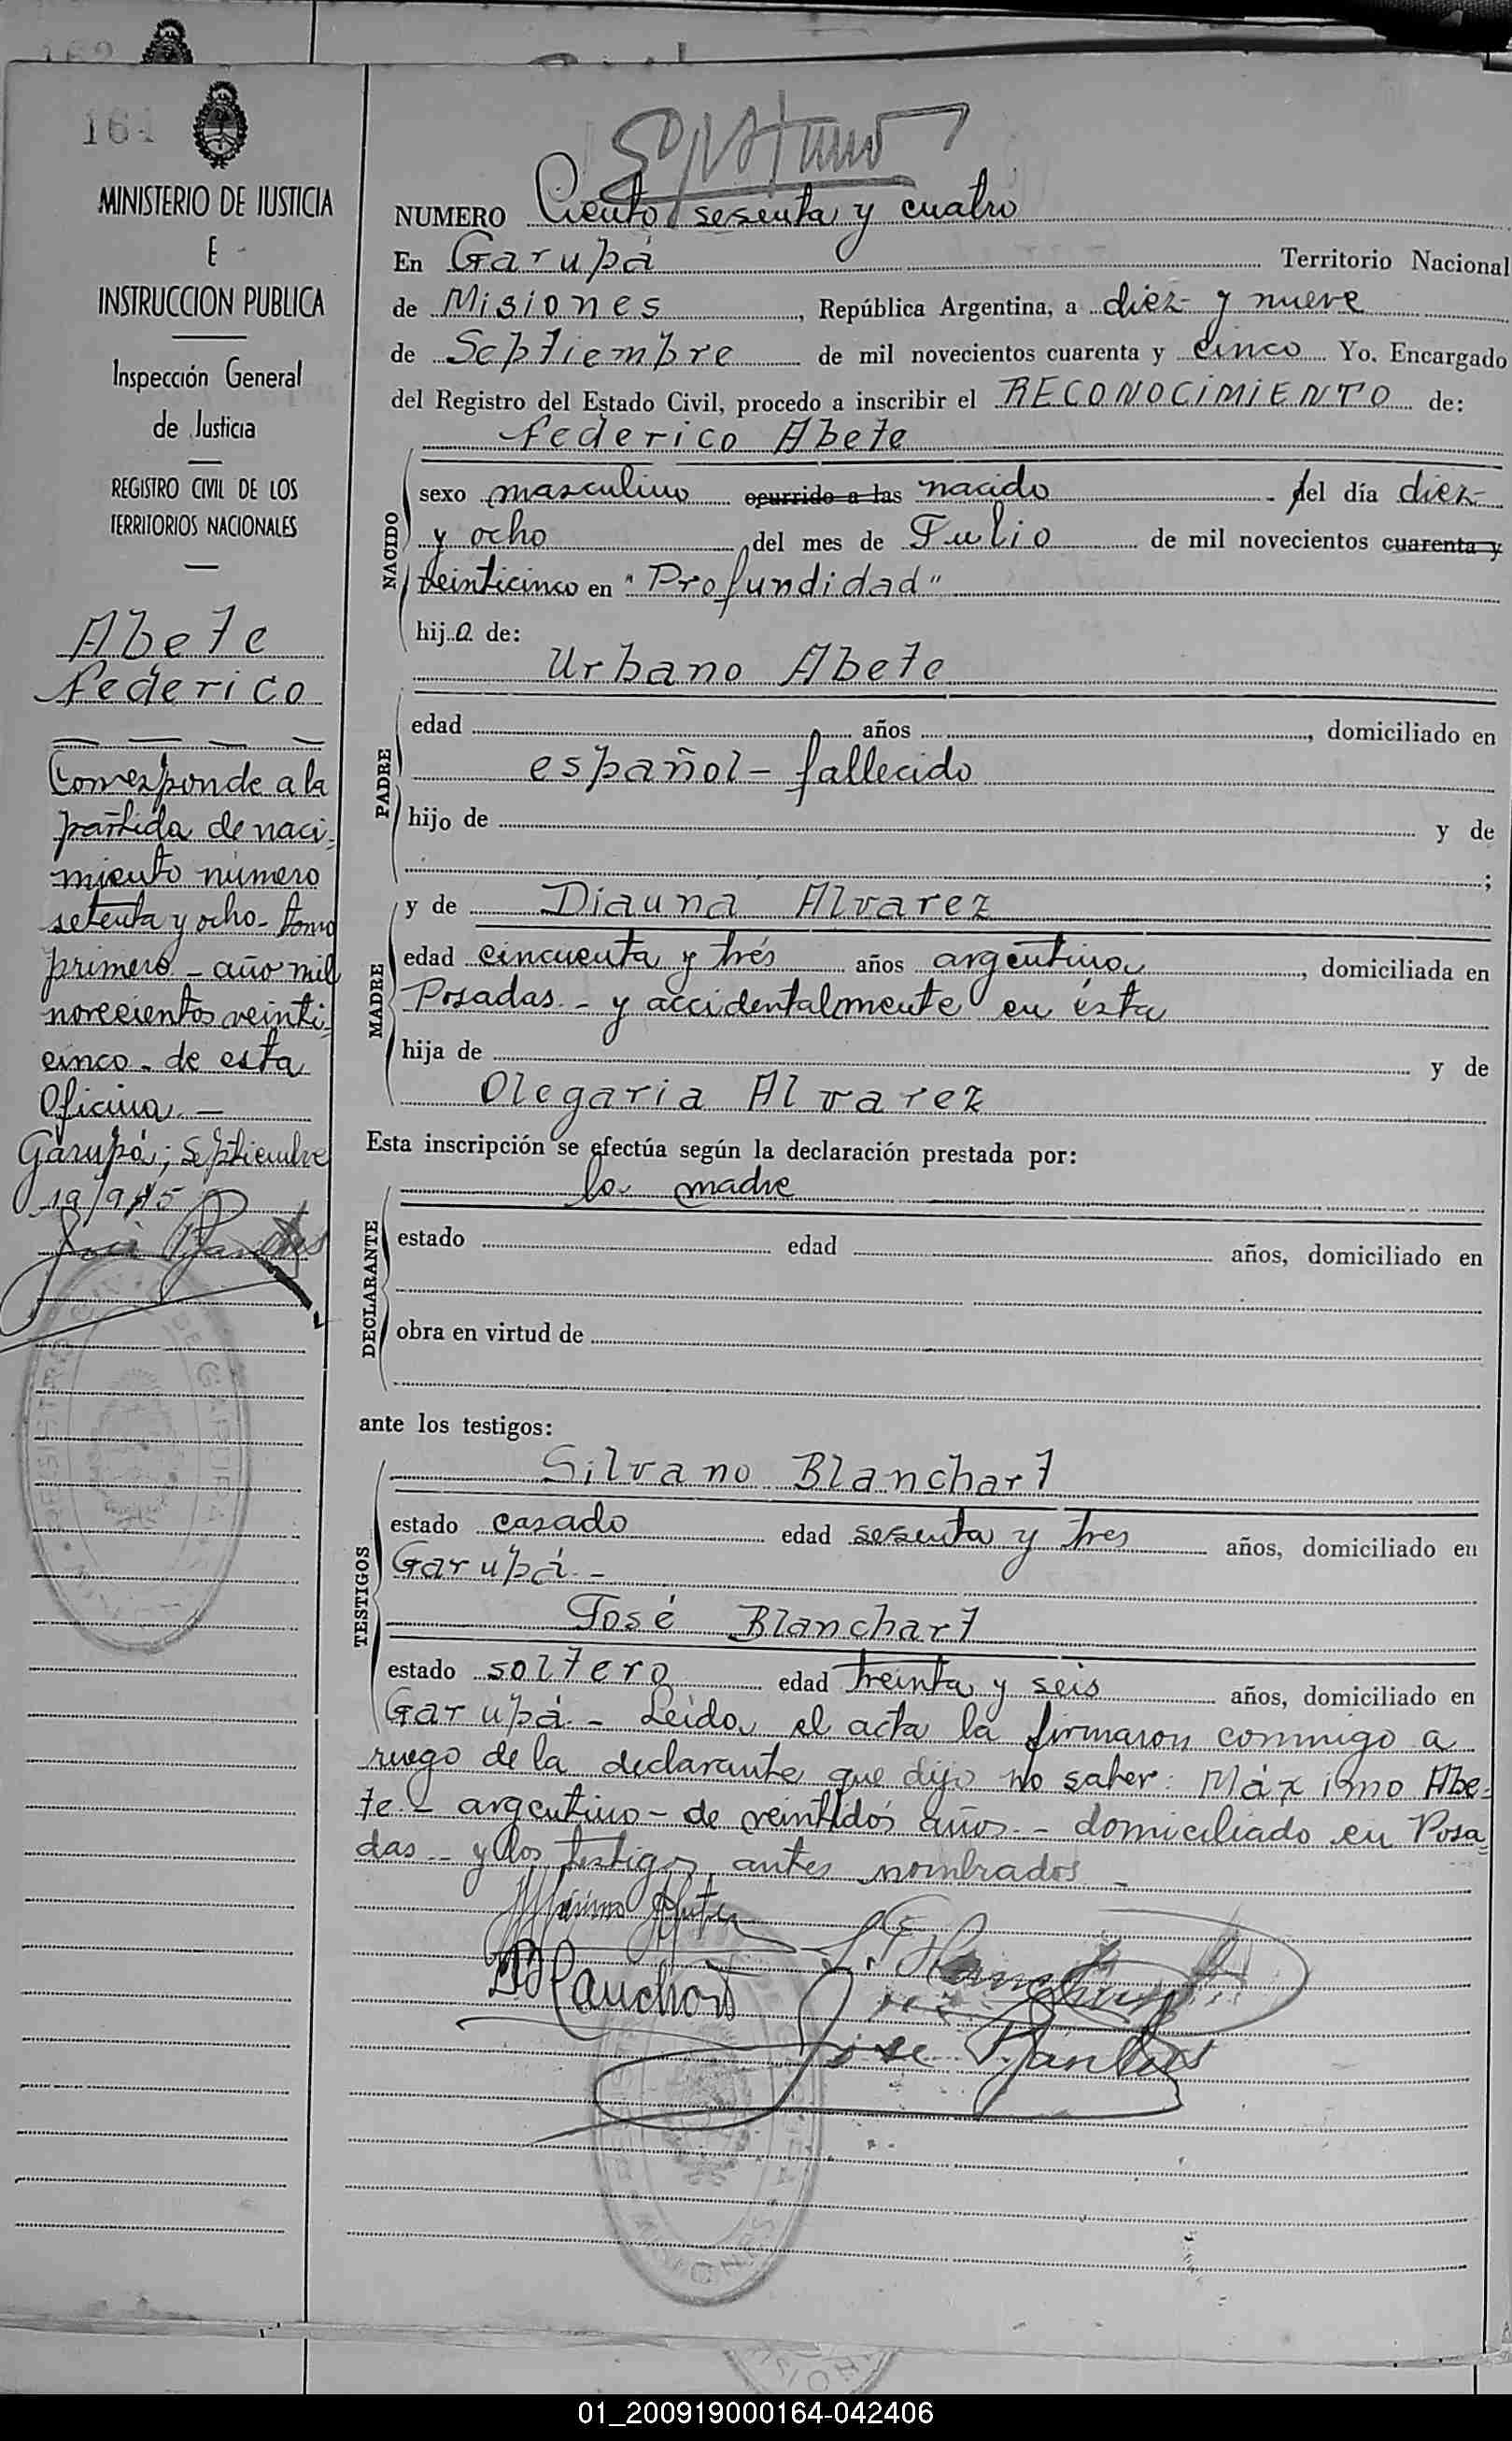 164
MINISTERIO DE JUSTICIA
E
INSTRUCCION PUBLICA
Inspección General
de Justicia
REGISTRO CIVIL DE LOS
TERRITORIOS NACIONALES
Abete
Federico
Corresponde a la
partida de naci-
miento número
setenta y ocho - tomo
primero - año mil
novecientos veinti-
cinco - de esta
Oficina -
Garupá; Septiembre
19/945
NUMERO Ciento sesenta y cuatro
En Garupá Territorio Nacional
de Misiones, República Argentina, a diez y nueve
de Septiembre de mil novecientos cuarenta y cinco Yo, Encargado
del Registro del Estado Civil, procedo a inscribir el RECONOCIMIENTO de:
Federico Abete
NACIDO
sexo masculino ocurrido a las nacido del día diez
y ocho del mes de Julio de mil novecientos cuarenta y
veinticinco en "Profundidad"
hijo de:
Urbano Abete
PADRE
edad años, domiciliado en
español - fallecido
hijo de y de
;
y de Diauna Alvarez
MADRE
edad cincuenta y trés años argentina, domiciliada en
Posadas - y accidentalmente en ésta
hija de y de
Olegaria Alvarez
Esta inscripción se efectúa según la declaración prestada por:
la madre
DECLARANTE
estado edad años, domiciliado en
obra en virtud de
ante los testigos:
Silvano Blanchart
TESTIGOS
estado casado edad sesenta y tres años, domiciliado en
Garupá -
José Blanchart
estado soltero edad treinta y seis años, domiciliado en
Garupá - Leída el acta la firmaron conmigo a
ruego de la declarante que dijo no saber: Máximo Abe-
te - argentino - de veintidós años - domiciliado en Posa-
das - y los testigos antes nombrados -
01_200919000164-042406